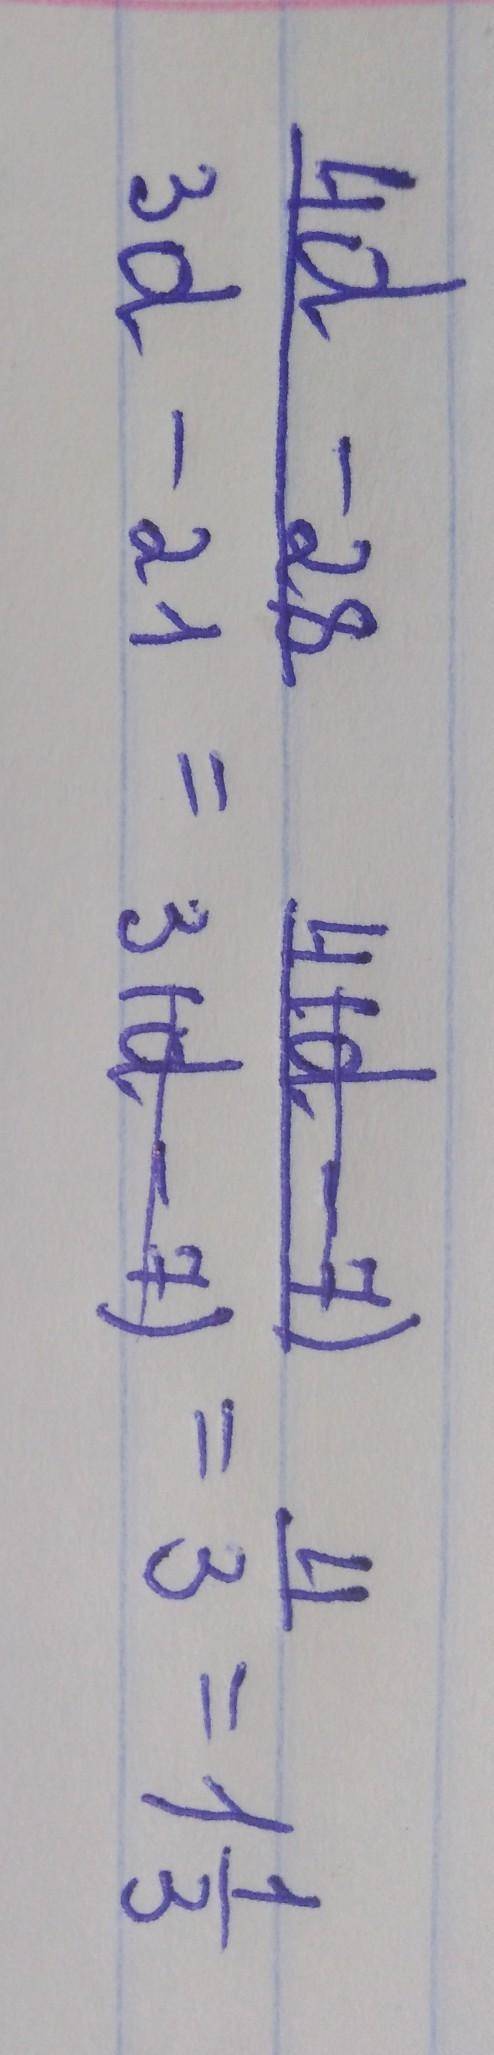 4d - 28
3d - 21 = 4(d - 7)
3(d - 7) = 4
3 = 1 1/3